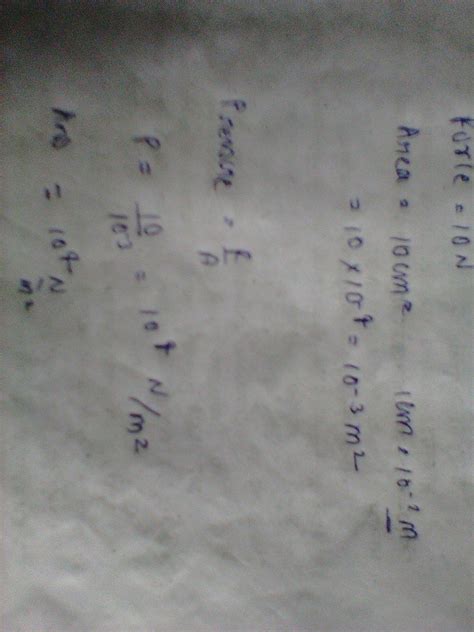 Force = 10 N
Area = 10 cm² 1cm = 10⁻² m
= 10 × 10⁻⁴ = 10⁻³ m²
Pressure = F/A
P = 10/10⁻³ = 10⁴ N/m²
Ans = 10⁴ N/m²